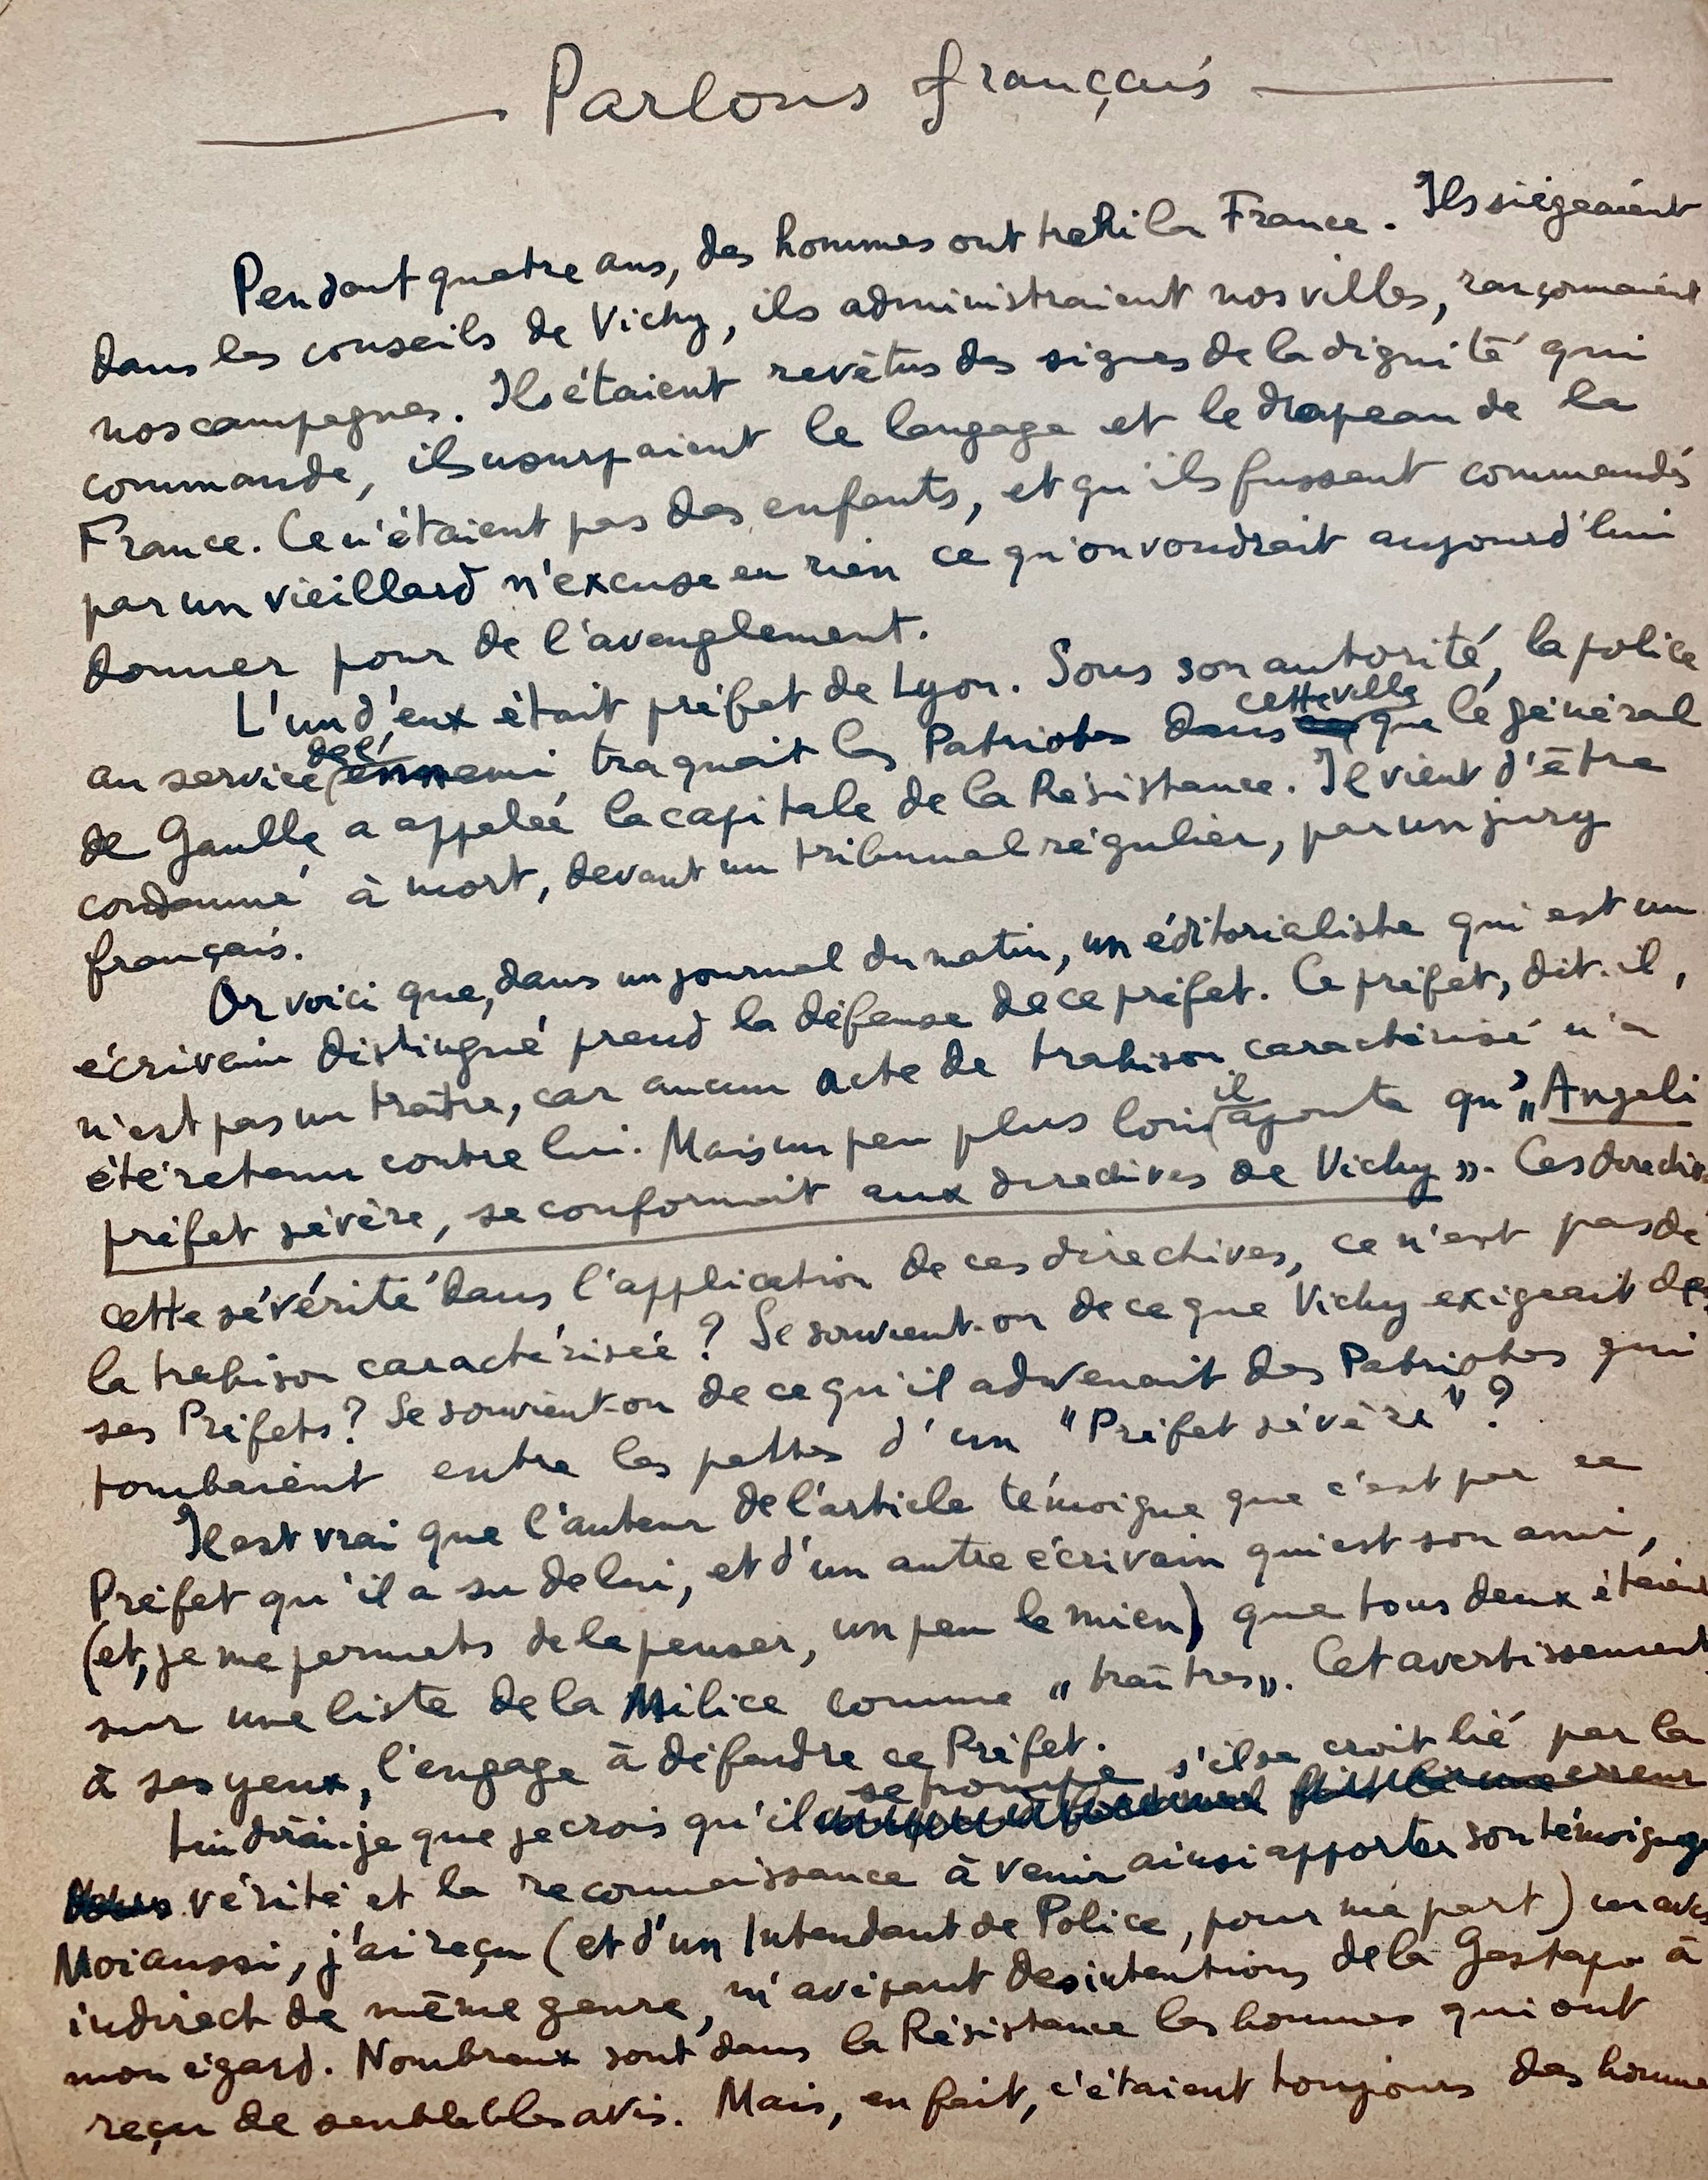 Parlons français
Pendant quatre ans, des hommes ont trahi la France. Ils siégeaient
dans les conseils de Vichy, ils administraient nos villes, rançonnaient
nos campagnes. Ils étaient revêtus des signes de la dignité qui
commande, ils usurpaient le langage et le drapeau de la
France. Ce n'étaient pas des enfants, et qu'ils fussent commandés
par un vieillard n'excuse en rien ce qu'on voudrait aujourd'hui
donner pour de l'aveuglement.
L'un d'eux était préfet de Lyon. Sous son autorité, la police
au service de l'ennemi traquait les Patriotes dans cette ville que le général
de Gaulle a appelée la capitale de la Résistance. Il vient d'être
condamné à mort, devant un tribunal régulier, par un jury
français.
Or voici que, dans un journal du matin, un éditorialiste qui est un
écrivain distingué prend la défense de ce préfet. Ce préfet, dit-il,
n'est pas un traître, car aucun acte de trahison caractérisé n'a
été retenu contre lui. Mais un peu plus loin il ajoute qu'"Angeli
préfet sévère, se conformait aux directives de Vichy". Ces directives
cette sévérité dans l'application de ces directives, ce n'est pas de
la trahison caractérisée? Se souvient-on de ce que Vichy exigeait de
ses Préfets? Se souvient-on de ce qu'il advenait des Patriotes qui
tombaient entre les pattes d'un "Préfet sévère"?
Il est vrai que l'auteur de l'article témoigne que c'est par ce
Préfet qu'il a su de lui, et d'un autre écrivain qui est son ami,
(et, je me permets de le penser, un peu le mien) que tous deux étaient
sur une liste de la Milice comme "traîtres". Cet avertissement
à ses yeux, l'engage à défendre ce Préfet.
Lui dirai-je que je crois qu'il se trompe s'il se croit lié par la
vérité et la reconnaissance à venir ainsi apporter son témoignage
Moi aussi, j'ai reçu (et d'un Intendant de Police, pour ma part) un avis
indirect de même genre, m'avisant des intentions de la Gestapo à
mon égard. Nombreux sont dans la Résistance les hommes qui ont
reçu de semblables avis. Mais, en fait, c'étaient toujours des hommes